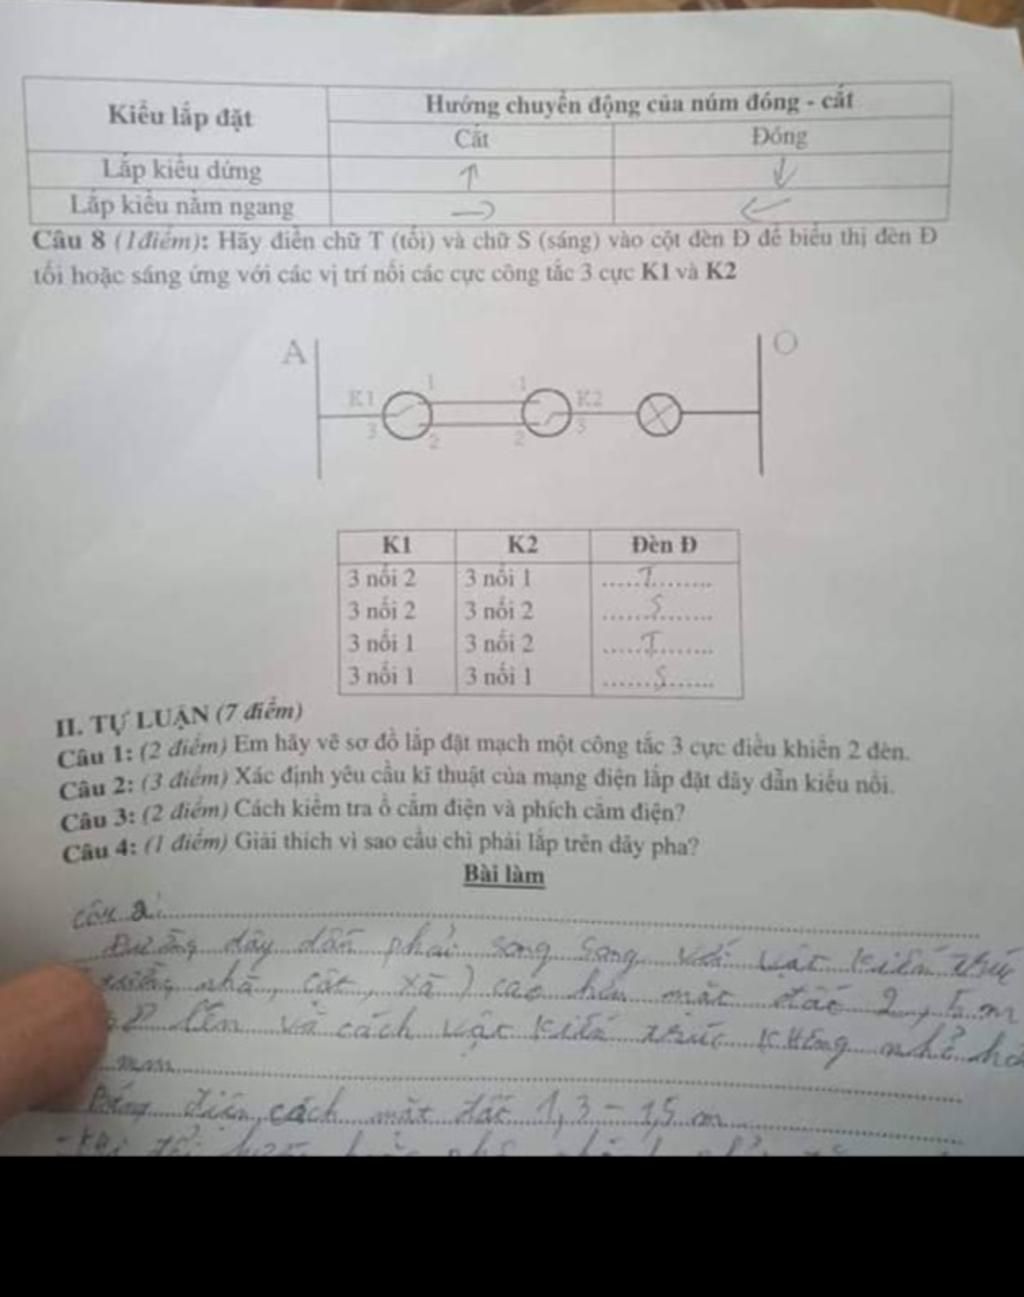 Kiểu lắp đặt
Hướng chuyển động của núm đóng - cắt
Cắt Đóng
Lắp kiểu đứng ↑ ↓
Lắp kiểu nằm ngang → ←
Câu 8 (1điểm): Hãy điền chữ T (tối) và chữ S (sáng) vào cột đèn Đ để biểu thị đèn Đ
tối hoặc sáng ứng với các vị trí nối các cực công tắc 3 cực K1 và K2
A O
K1 1 1 K2
3 2 2 3
K1 K2 Đèn Đ
3 nối 2 3 nối 1 .....T........
3 nối 2 3 nối 2 ......S.......
3 nối 1 3 nối 2 .....T.......
3 nối 1 3 nối 1 ......S......
II. TỰ LUẬN (7 điểm)
Câu 1: (2 điểm) Em hãy vẽ sơ đồ lắp đặt mạch một công tắc 3 cực điều khiển 2 đèn.
Câu 2: (3 điểm) Xác định yêu cầu kĩ thuật của mạng điện lắp đặt dây dẫn kiểu nổi.
Câu 3: (2 điểm) Cách kiểm tra ổ cắm điện và phích cắm điện?
Câu 4: (1 điểm) Giải thích vì sao cầu chì phải lắp trên dây pha?
Bài làm
câu 2:
Đường dây dẫn phải song song với vật kiến trúc
nhà, cột, xà) cao hơn mặt đất 2,5 m
lên và cách vật kiến trúc không nhỏ
mm
Bảng điện cách mặt đất 1,3 - 1,5 m